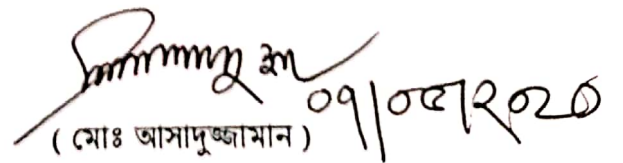 ০৭/০৫/২০২০
( মোঃ আসাদুজ্জামান )